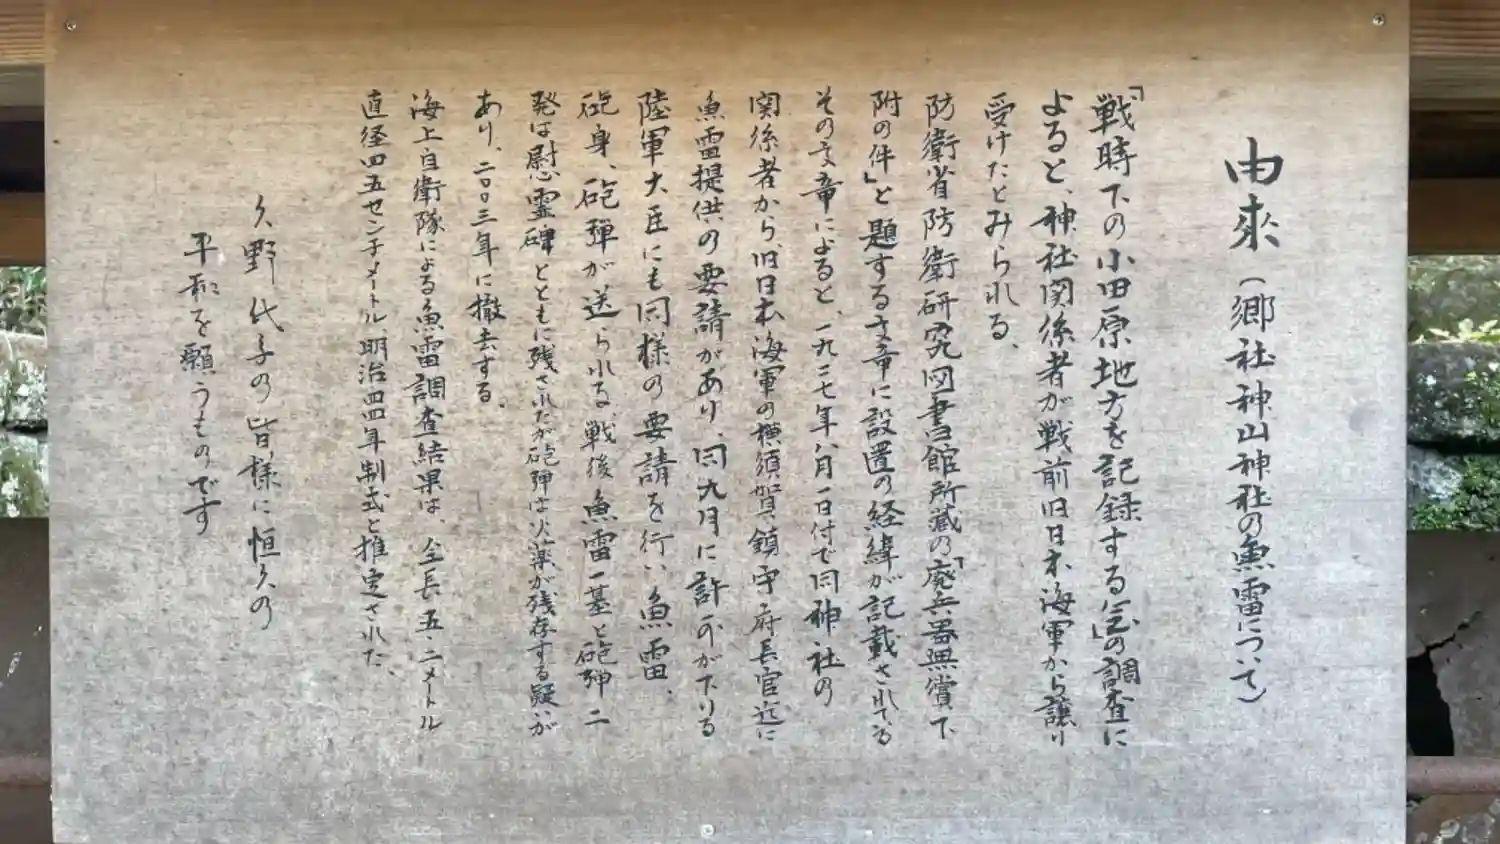 由来(郷社神山神社の魚雷について)
「戦時下の小田原地方を記録する会」の調査に
よると、神社関係者が戦前旧日本海軍から譲り
受けたとみられる。
防衛省防衛研究図書館所蔵の「廃兵器無償下
附の件」と題する文章に設置の経緯が記載されている
その文章によると、一九二七年八月一日付で同神社の
関係者から、旧日本海軍の横須賀鎮守府長官迄に
魚雷提供の要請があり、同九月に許可が下りる
陸軍大臣にも同様の要請を行い、魚雷、
砲身、砲弾が送られる、戦後魚雷一基と砲弾二
発は慰霊碑とともに残されたが砲弾は火薬が残存する疑いが
あり、二〇〇三年に撤去する。
海上自衛隊による魚雷調査結果は、全長五・二メートル
直径四五センチメートル、明治四四年制式と推定された、
久野代子の皆様に恒久の
平和を願うものです